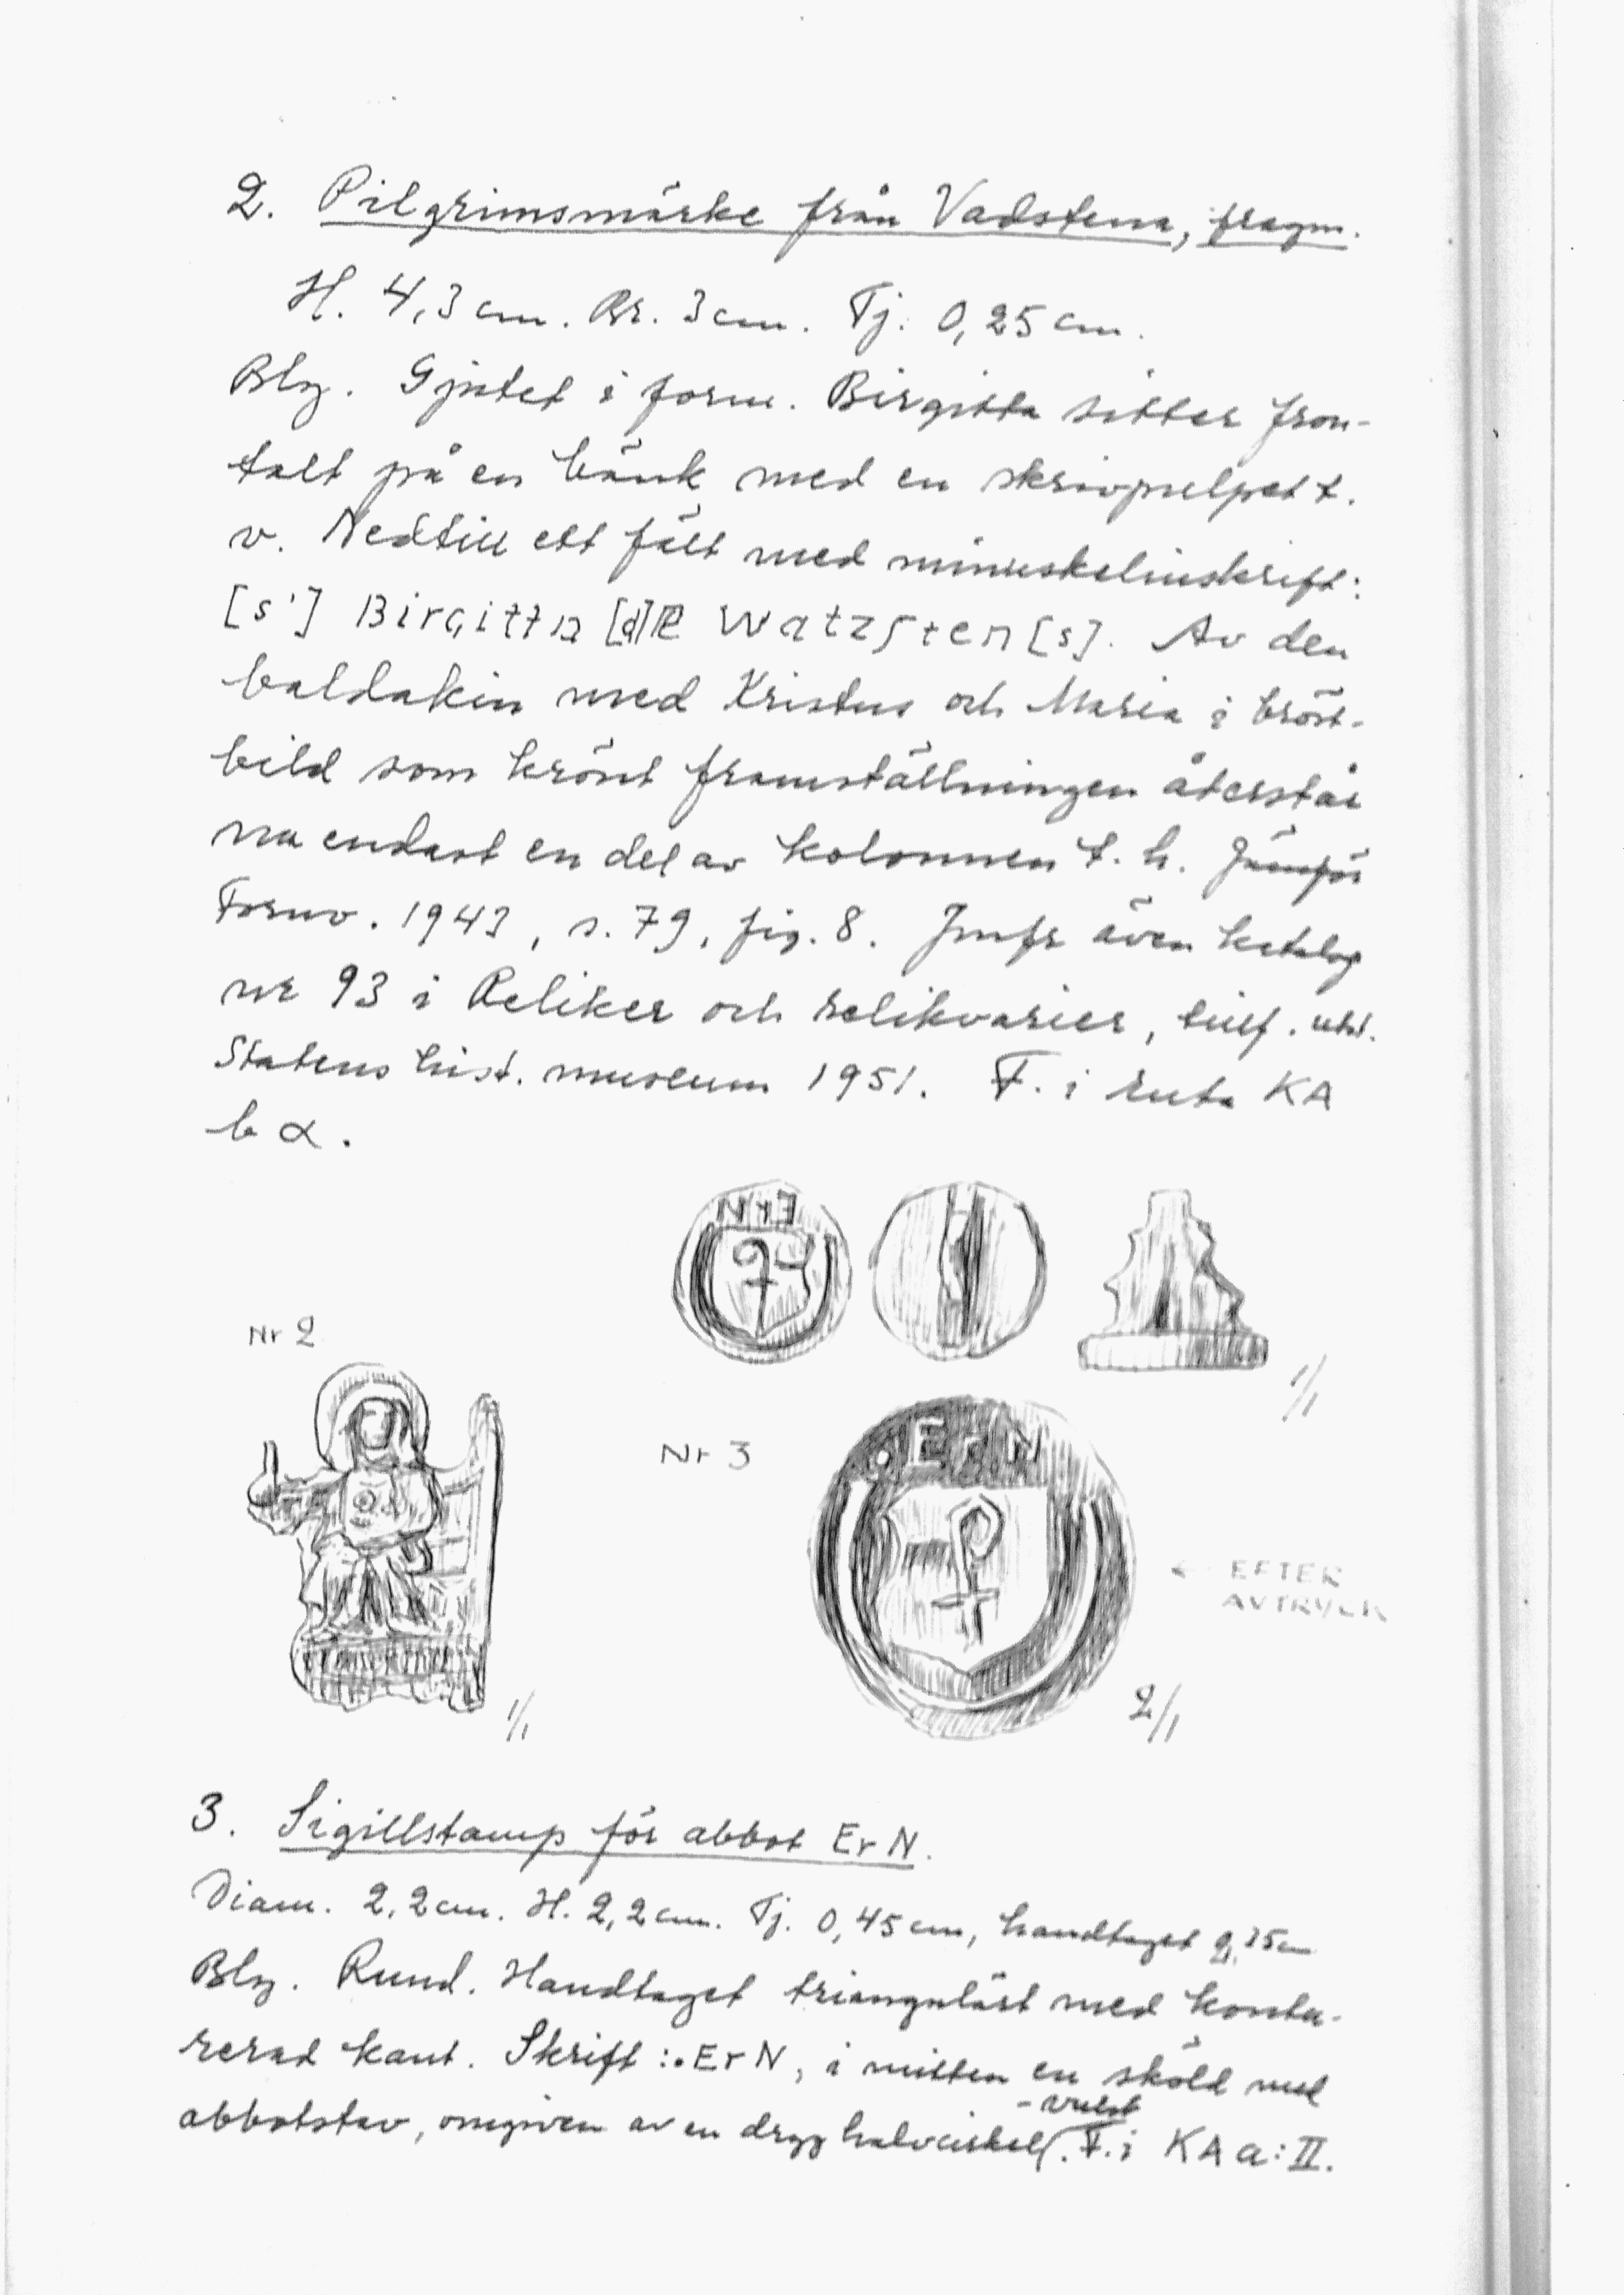 2. Pilgrimsmärke från Vadstena, fragm.
H. 4,3 cm. Br. 3 cm. Tj. 0,25 cm.
Bly. Gjutet i form. Birgitta sitter fron-
talt på en bänk med en skrivpulpet t.
v. Nedtill ett fält med minuskelinskrift:
[s'] Birgitta [d]e Watzsten[s]. Av den
baldakin med Kristus och Maria i bröst-
bild som krönt framställningen återstår
nu endast en del av kolonnen t. h. Jämför
Fornv. 1943, s. 79, fig. 8. Jmfr även katalog
nr 93 i Reliker och relikvarier, tillf. utst.
Statens hist. museum 1951. F. i ruta KA
b α.
ErN
1/1
Nr 2
Nr 3
ErN
← EFTER
AVTRYCK
1/1
2/1
3. Sigillstamp för abbot ErN.
Diam. 2,2 cm. H. 2,2 cm. Tj. 0,45 cm, handtaget
Bly. Rund. Handtaget triangulärt med kontu-
rerad kant. Skrift: •ErN, i mitten en sköld med
-vulst
abbotstav, omgiven av en dryg halvcirkel. F. i KA a:II.